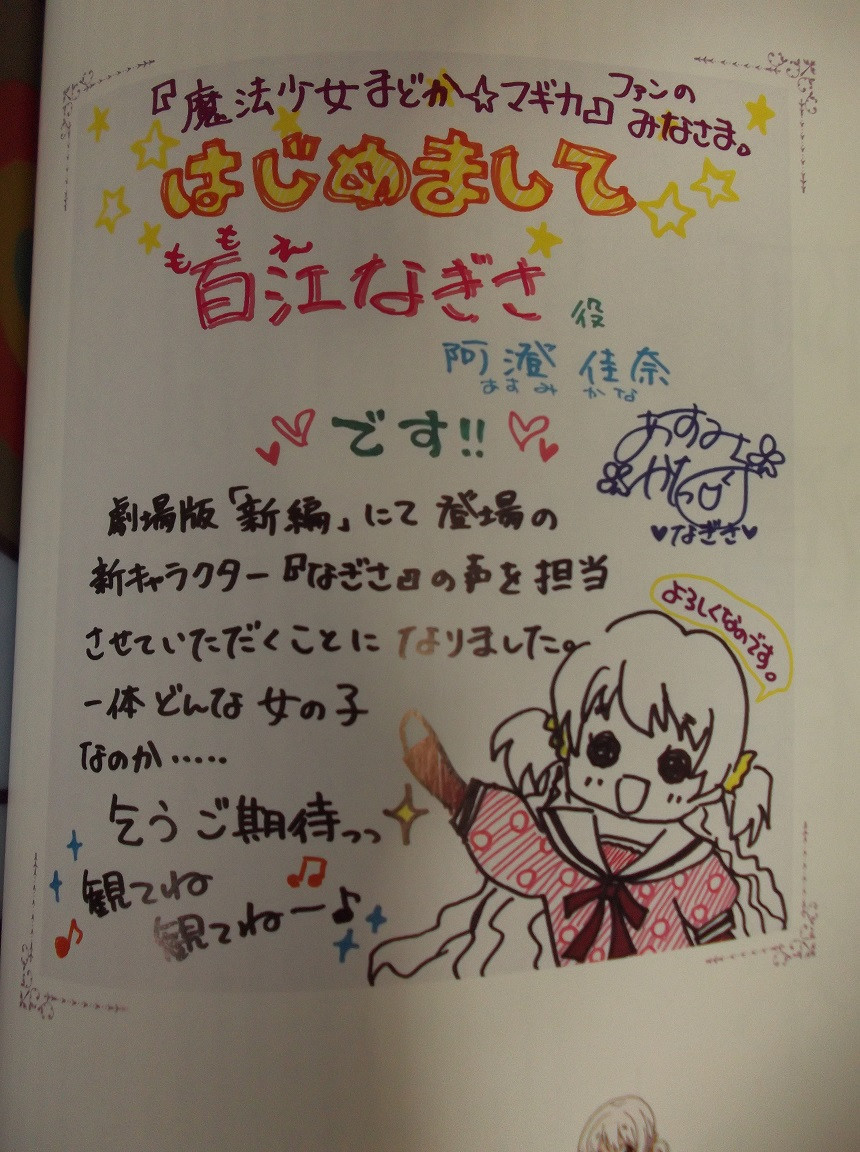 『魔法少女まどか☆マギカ』ファンのみなさま。
はじめまして
もも え
百江なぎさ 役
阿澄 佳奈
あすみ かな
です!!
あすみ
かな
♥なぎさ♥
劇場版「新編」にて登場の
新キャラクター『なぎさ』の声を担当
させていただくことになりました。
よろしくなのです。
一体どんな女の子
なのか……
乞うご期待っっ
観てね
観てねー♪